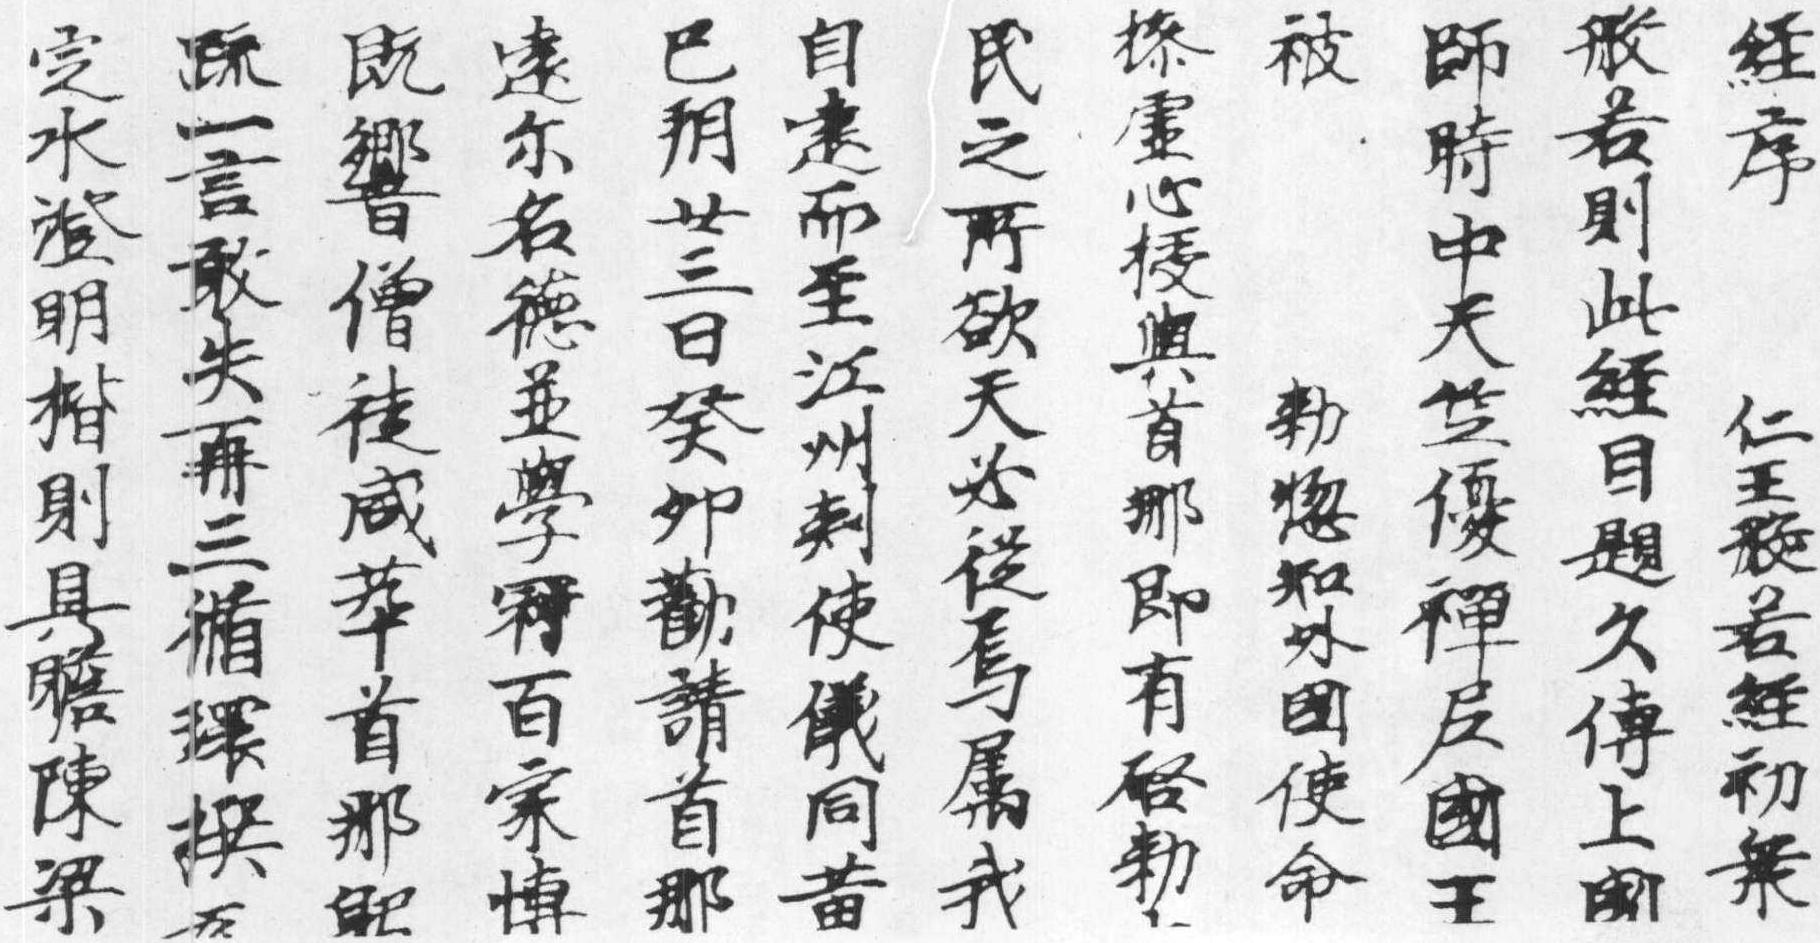 経序 仁王般若経初衆
般若則此経目題久傳上
師時中天竺優禅尼國王
被 勅惣知外國使命
虚心授與首那即有啓勅
民之所欲天必従焉属我
自遠而至江州刺使儀同黄
巳朔廿三日癸卯勸請首那
遠尓名德並學百家博
既響僧徒咸萃首那
疏一言敢失再三循環撰
定水澄明楷則具瞻陳梁